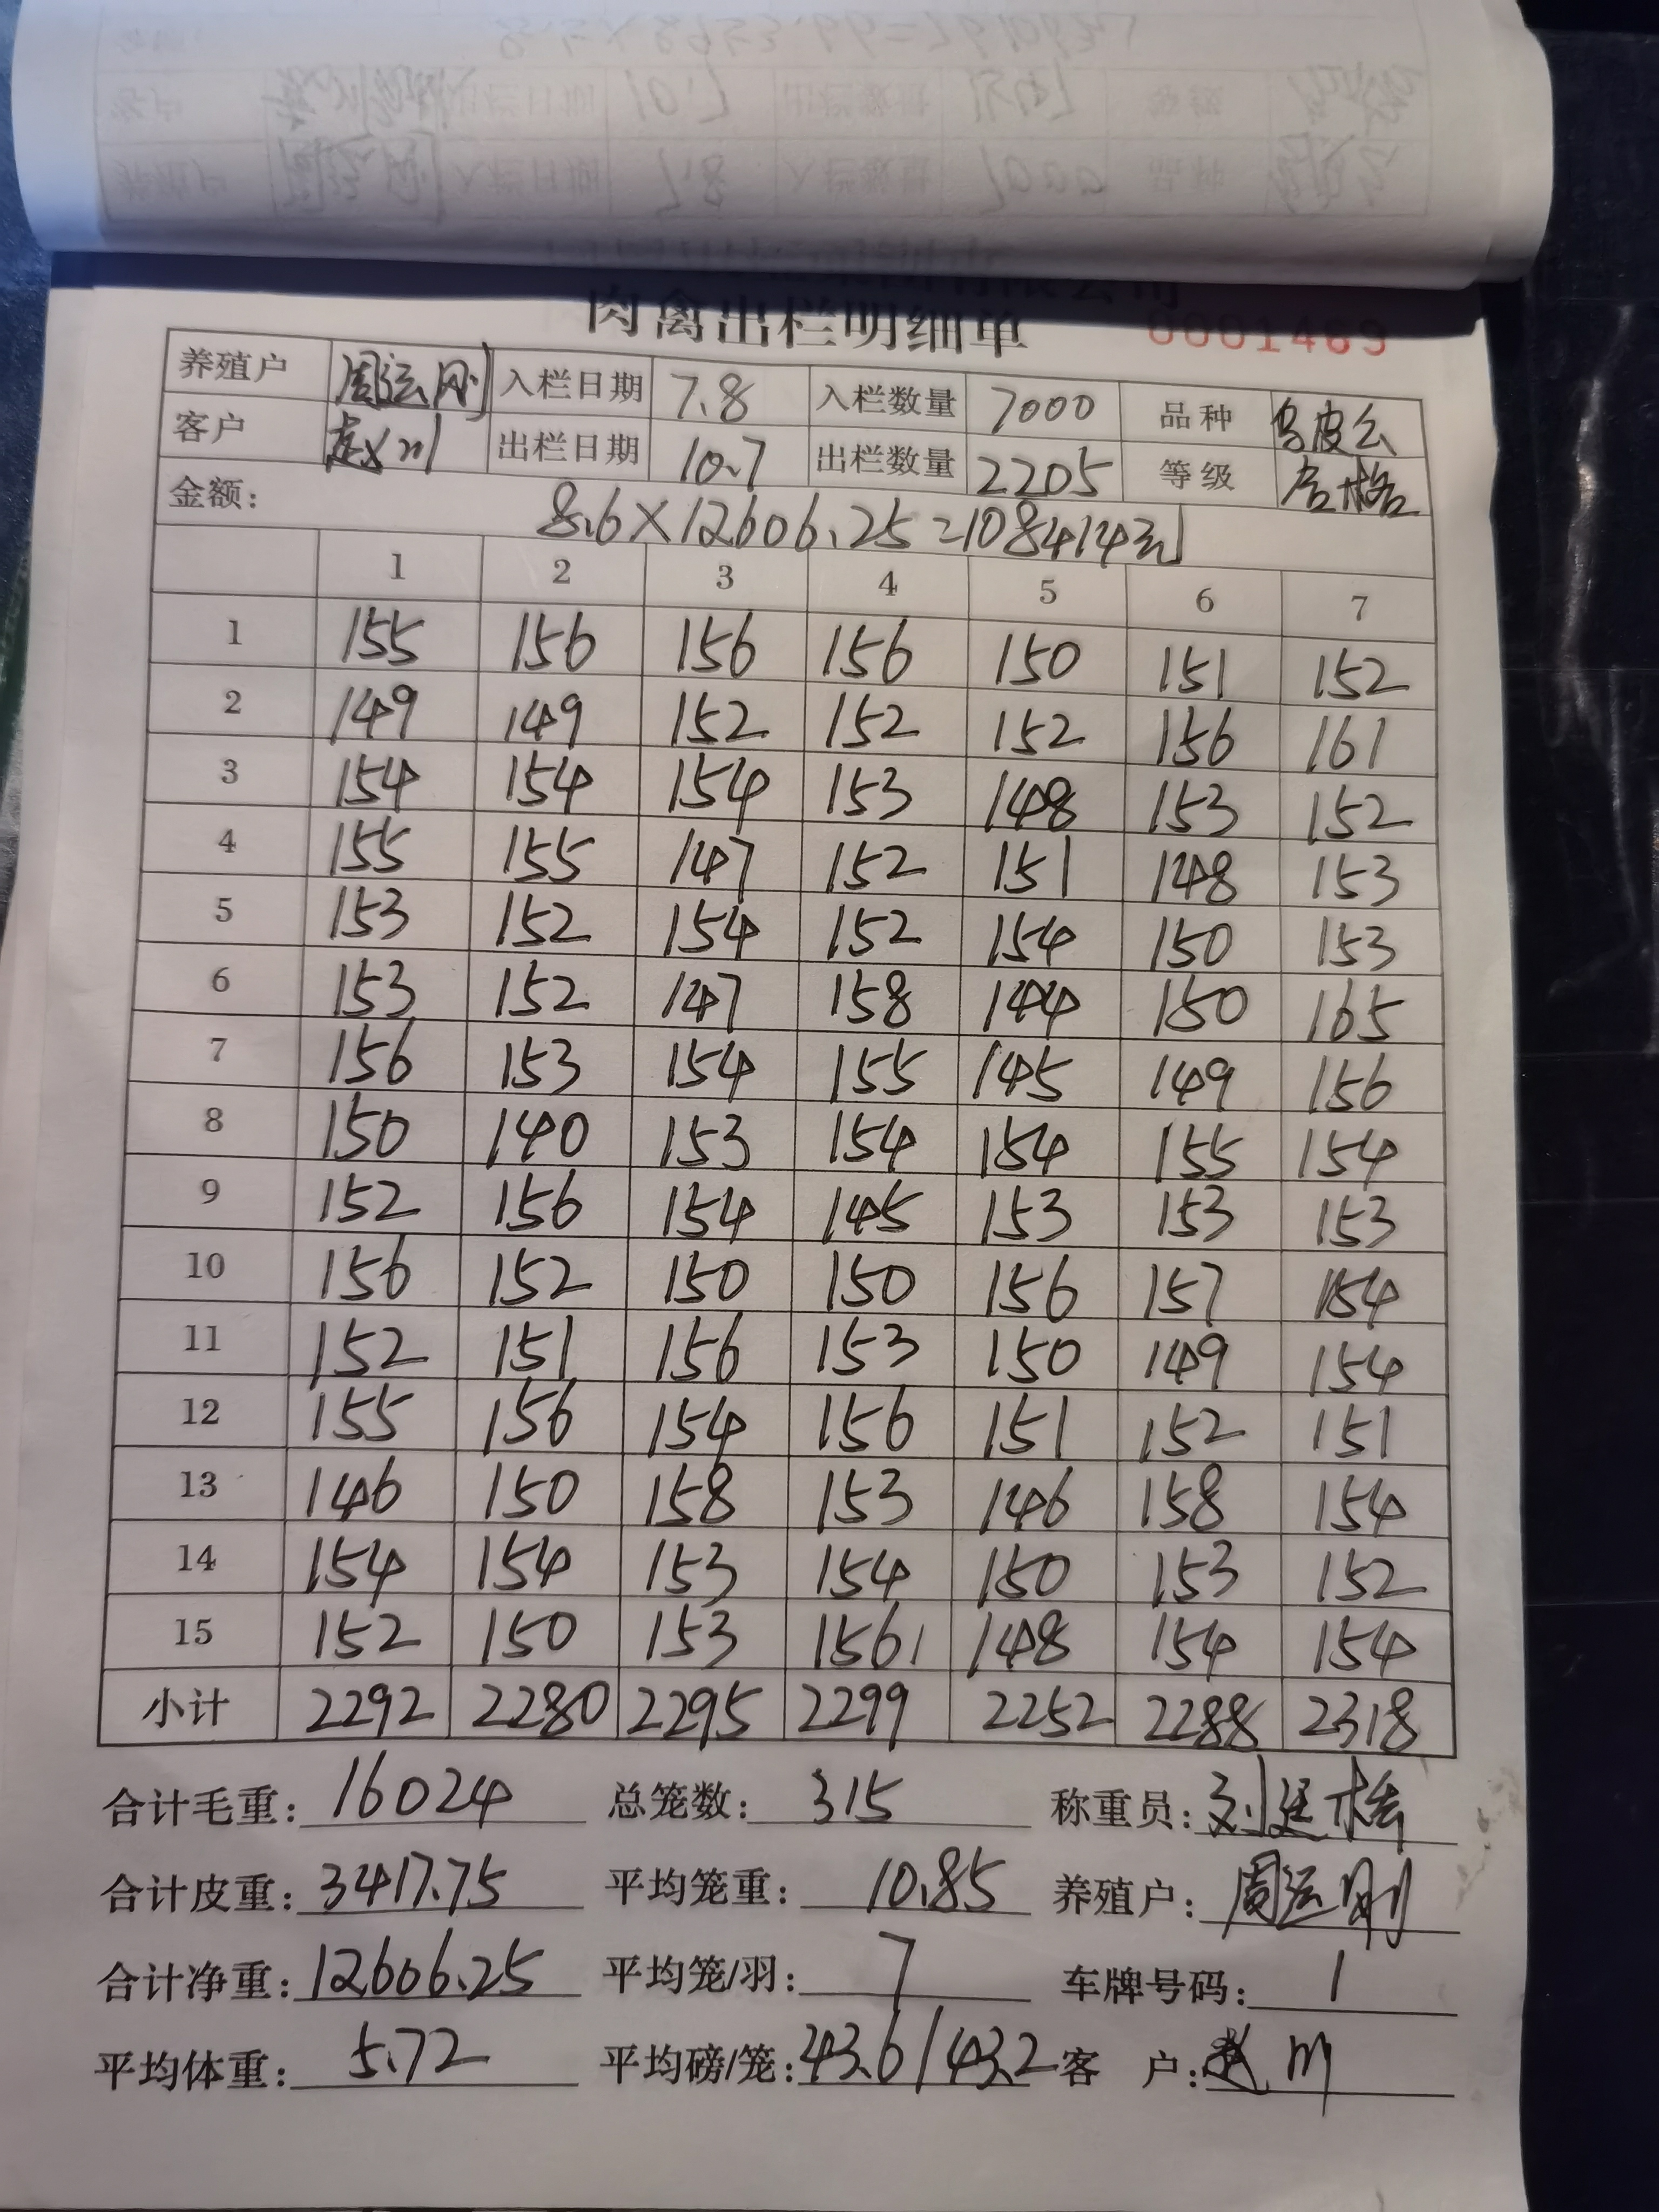 肉禽出栏明细单 0001469
养殖户 周运刚 入栏日期 7.8 入栏数量 7000 品种 乌皮公
客户 赵川 出栏日期 10.7 出栏数量 2205 等级 合格
金额: 8.6×12606.25=108414元
1 2 3 4 5 6 7
1 155 156 156 156 150 151 152
2 149 149 152 152 152 156 161
3 154 154 154 153 148 153 152
4 155 155 147 152 151 148 153
5 153 152 154 152 154 150 153
6 153 152 147 158 144 150 165
7 156 153 154 155 145 149 156
8 150 140 153 154 154 155 154
9 152 156 154 145 153 153 153
10 156 152 150 150 156 157 154
11 152 151 156 153 150 149 154
12 155 156 154 156 151 152 151
13 146 150 158 153 146 158 154
14 154 154 153 154 150 153 152
15 152 150 153 156 148 154 154
小计 2292 2280 2295 2299 2252 2288 2318
合计毛重: 16024 总笼数: 315 称重员:
合计皮重: 3417.75 平均笼重: 10.85 养殖户: 周运刚
合计净重: 12606.25 平均笼/羽: 7 车牌号码: 1
平均体重: 5.72 平均磅/笼: 43.6/43.2 客 户: 赵川